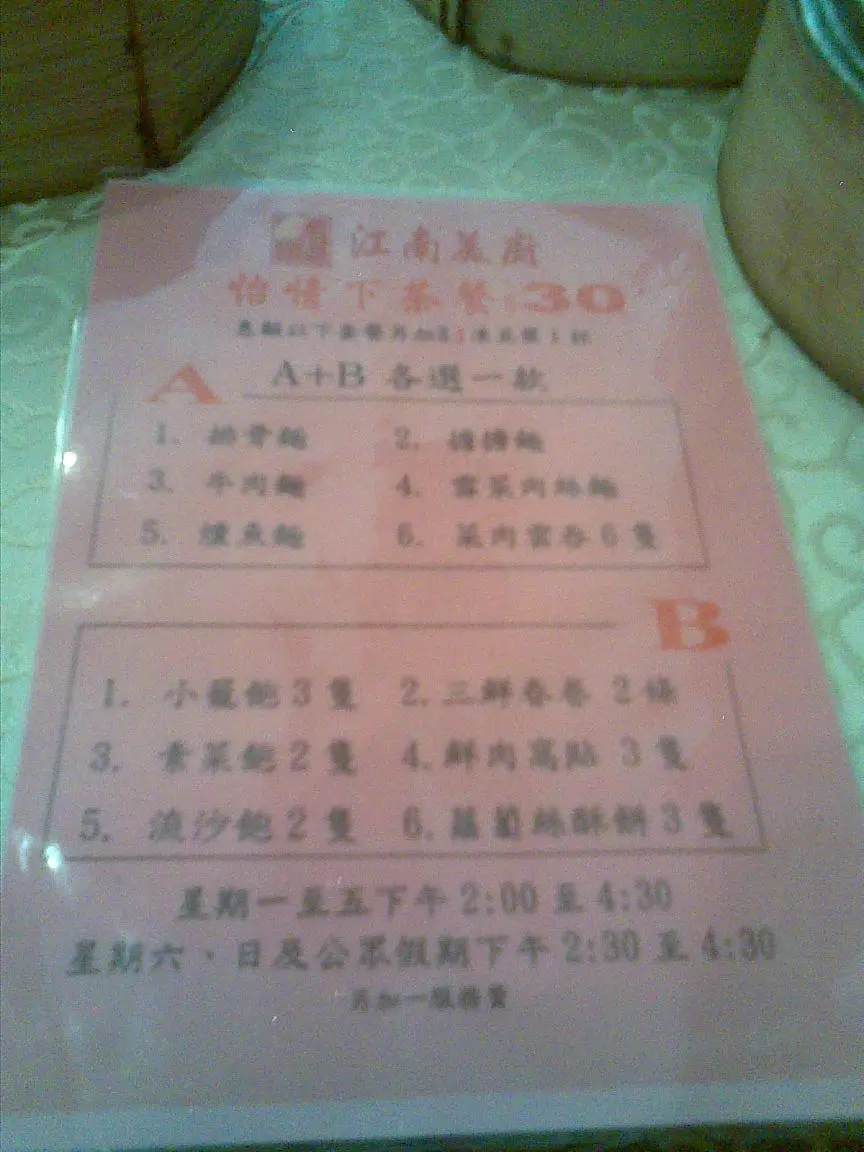 江南美廚
怡情下茶餐 $30
惠顧以下套餐另加$ 凍豆漿1杯
A
A+B 各選一款
1. 排骨麵 2. 擔擔麵
3. 牛肉麵 4. 雪菜肉絲麵
5. 燻魚麵 6. 菜肉雲吞6隻
B
1. 小籠飽3隻 2.三鮮春卷 2條
3. 素菜飽2隻 4.鮮肉窩貼 3隻
5. 流沙飽2隻 6.蘿蔔絲酥餅3隻
星期一至五下午2:00至4:30
星期六、日及公眾假期下午2:30至4:30
另加一服務費